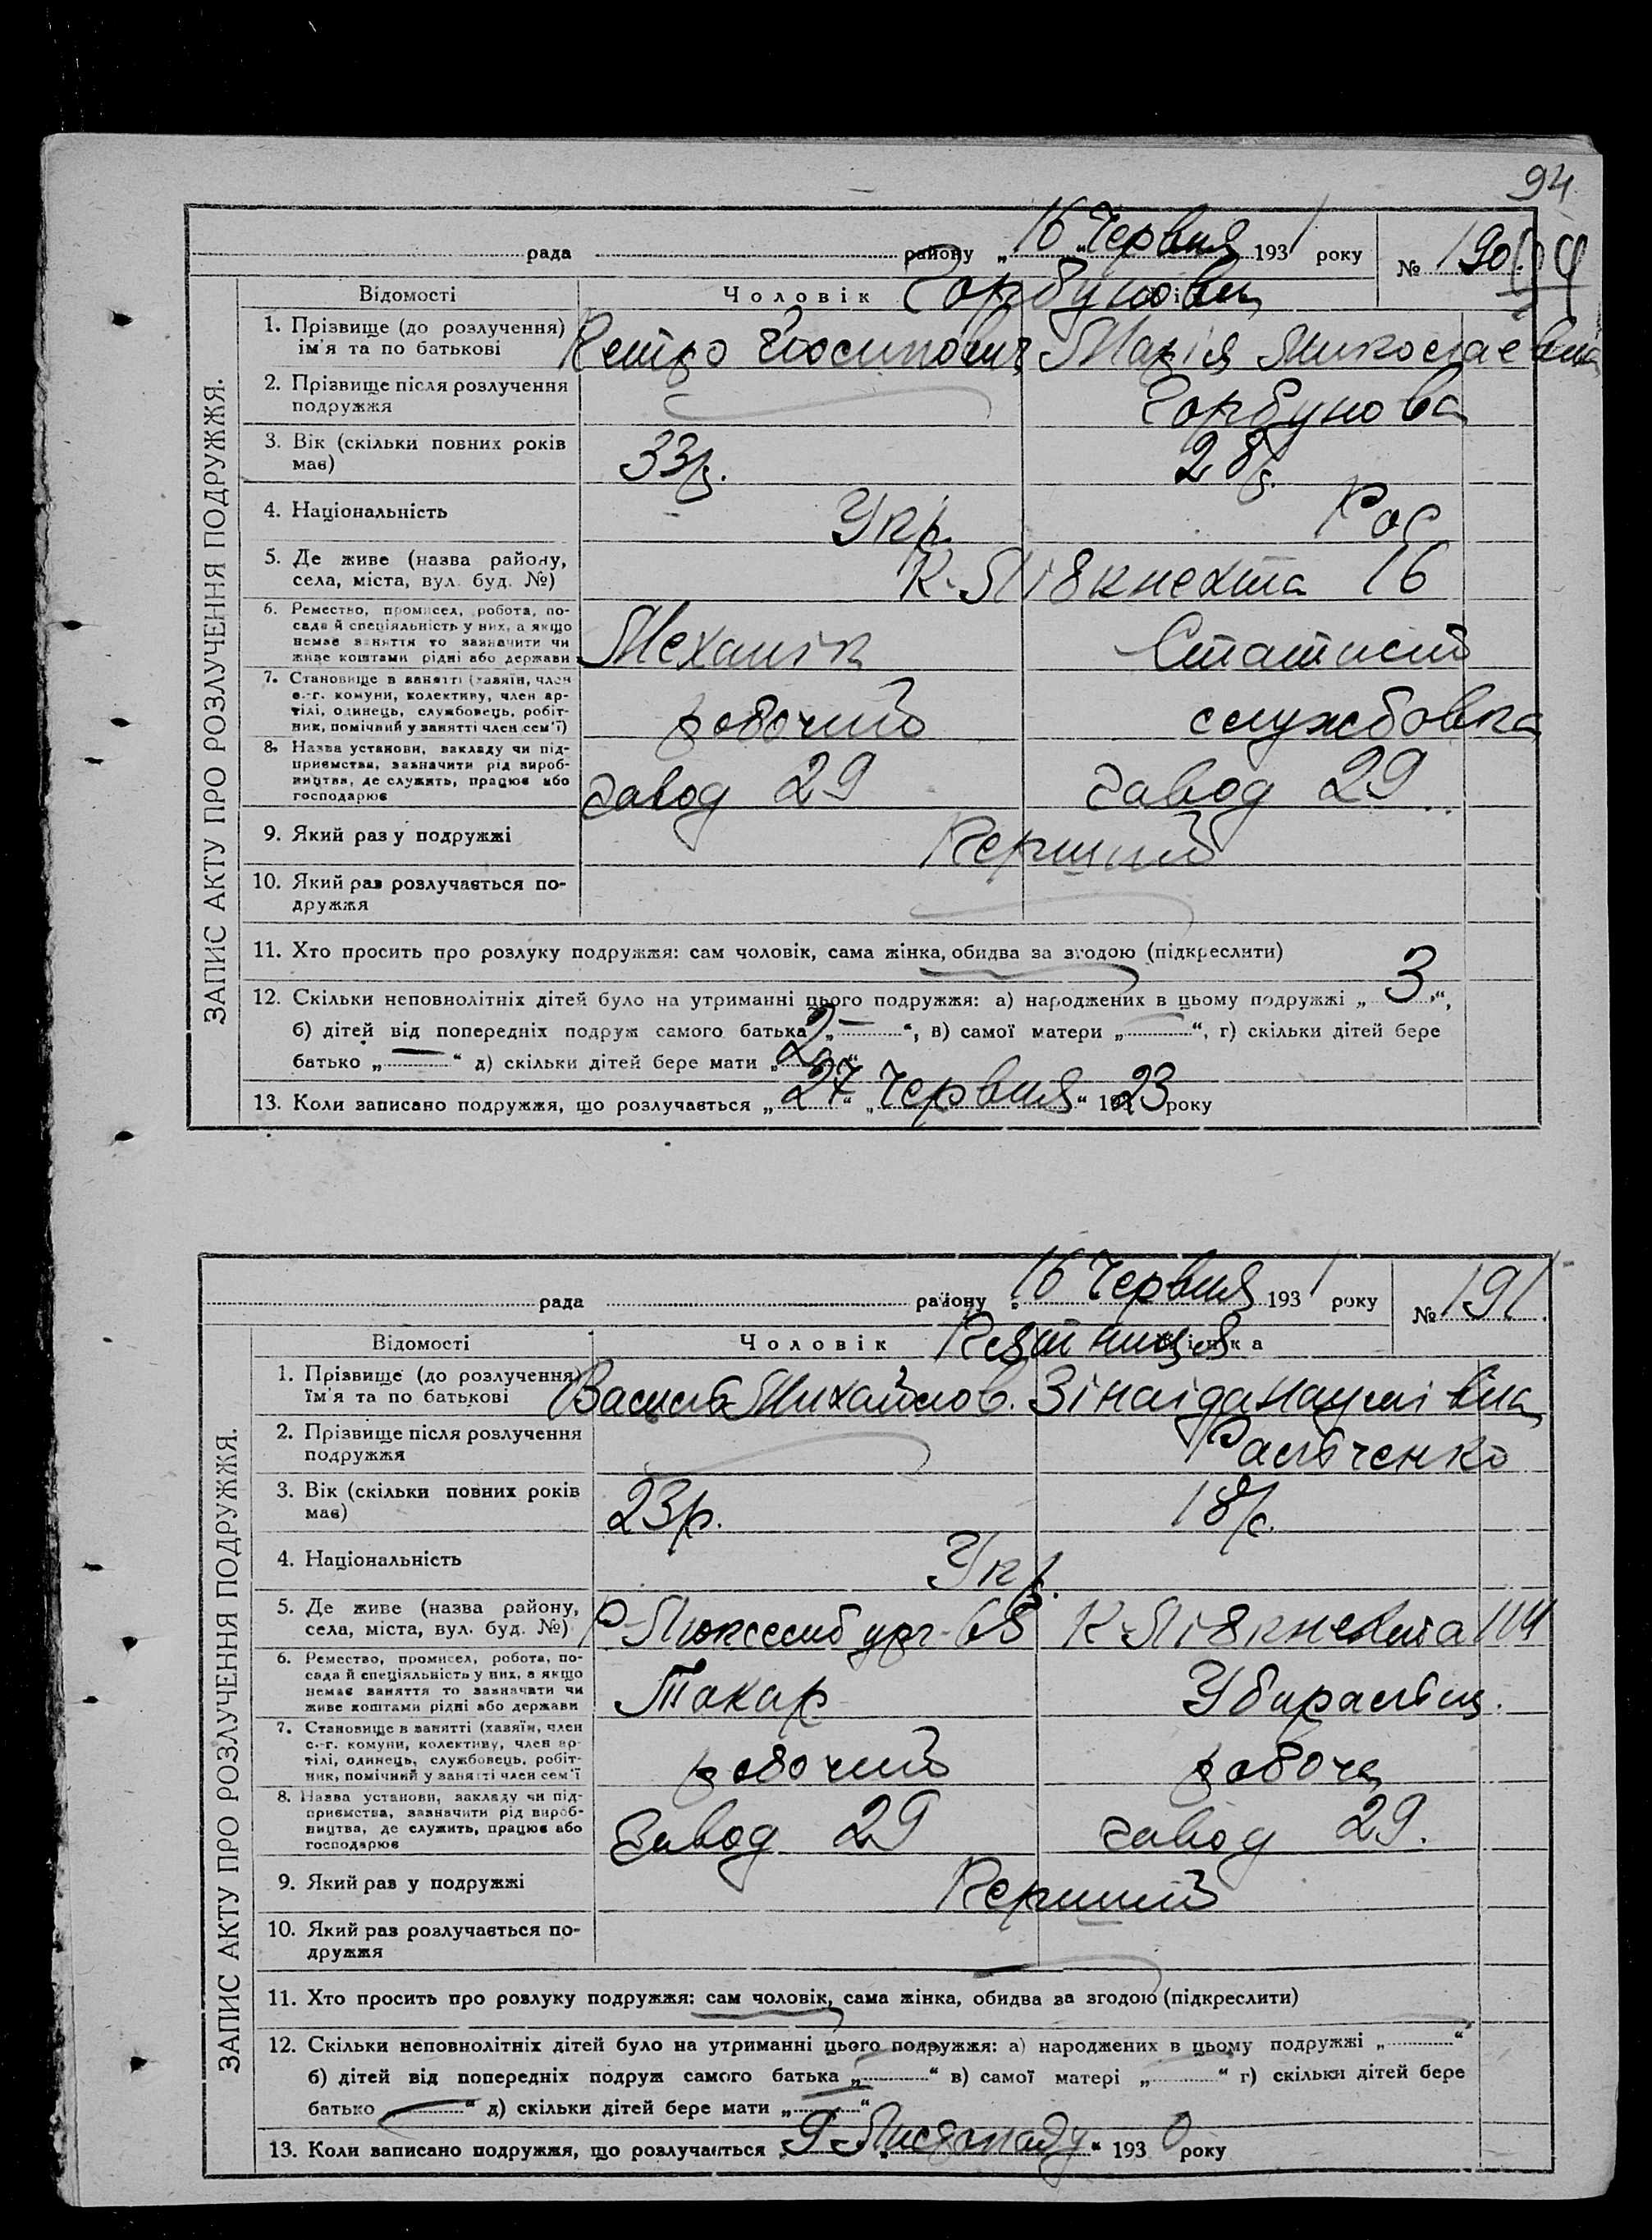 94
рада району „16" Червня 1931 року № 190
ЗАПИС АКТУ ПРО РОЗЛУЧЕННЯ ПОДРУЖЖЯ.
Відомості Чоловік Горбунови
1. Прізвище (до розлучення) Петро Йосипович Марія Миколаєвна
ім'я та по батькові
2. Прізвище після розлучення Горбунова
подружжя
3. Вік (скільки повних років 33р. 28р.
має)
4. Національність Укр. Рос
5. Де живе (назва району, К-Лібкнехта 16
села, міста, вул. буд. №)
6. Ремество, промисел, робота, по-
сада й спеціяльність у них, а якщо
немає заняття то зазначити чи Механік Статист
живе коштами рідні або держави
7. Становище в занятті (хавяїн, член
с.-г. комуни, колективу, член ар-
тілі, одинець, службовець, робіт- робочий службовка
ник, помічний у занятті член сем'ї)
8. Назва установи, закладу чи під-
приємства, зазначити рід вироб-
ництва, де служить, працює або завод 29 завод 29
господарює
9. Який раз у подружжі Перший
10. Який раз розлучається по-
дружжя
11. Хто просить про розлуку подружжя: сам чоловік, сама жінка, обидва за згодою (підкреслити)
12. Скільки неповнолітніх дітей було на утриманні цього подружжя: а) народжених в цьому подружжі „3",
б) дітей від попередніх подруж самого батька „—", в) самої матери „—", г) скільки дітей бере
батько „—" д) скільки дітей бере мати „2"
13. Коли записано подружжя, що розлучається „27" „Червня" 1923 року
рада району 16 Червня 1931 року № 191
ЗАПИС АКТУ ПРО РОЗЛУЧЕННЯ ПОДРУЖЖЯ.
Відомості Чоловік
1. Прізвище (до розлучення) Василь Михайлов. Зінаіда Наумівна
їм'я та по батькові
2. Прізвище після розлучення Ральченко
подружжя
3. Вік (скільки повних років 23р. 18р.
має)
4. Національність Укр.
5. Де живе (назва району, Р-Люксембург-68 К-Лібкнехта 114
села, міста, вул. буд. №)
6. Ремество, промисел, робота, по-
сада й спеціяльність у них, а якщо
немає заняття то зазначати чи Токар Убиральщ.
живе коштами рідні або держави
7. Становище в занятті (хавяїн, член
с.-г. комуни, колективу, член ар-
тілі, одинець, службовець, робіт- робочий робоча
ник, помічний у занятті член сем'ї
8. Назва установи, закладу чи під-
приємства, зазначити рід вироб-
ництва, де служить, працює або Завод 29 завод 29.
господарює
9. Який раз у подружжі Перший
10. Який раз розлучається по-
дружжя
11. Хто просить про розлуку подружжя: сам чоловік, сама жінка, обидва за згодою (підкреслити)
12. Скільки неповнолітніх дітей було на утриманні цього подружжя: а) народжених в цьому подружжі „ "
б) дітей від попередніх подруж самого батька „—" в) самої матері „ " г) скільки дітей бере
батько „—" д) скільки дітей бере мати „ "
13. Коли записано подружжя, що розлучається „9" Листопаду" 1930 року